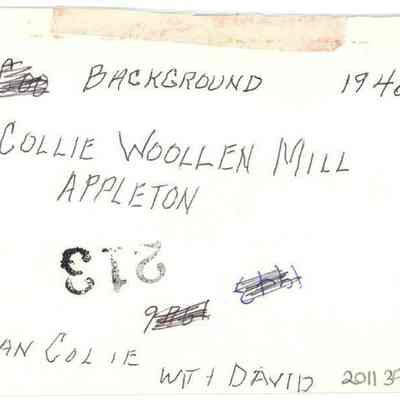 BACKGROUND 194
COLLIE WOOLLEN MILL
APPLETON
213
AN COLIE
WITH DAVID 2011 39